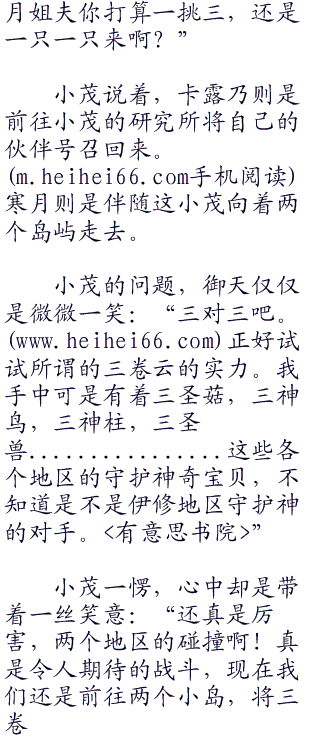 月姐夫你打算一挑三，还是
一只一只来啊？”
小茂说着，卡露乃则是
前往小茂的研究所将自己的
伙伴号召回来。
(m.heihei66.com手机阅读)
寒月则是伴随这小茂向着两
个岛屿走去。
小茂的问题，御天仅仅
是微微一笑：“三对三吧。
(www.heihei66.com)正好试
试所谓的三卷云的实力。我
手中可是有着三圣菇，三神
鸟，三神柱，三圣
兽................这些各
个地区的守护神奇宝贝，不
知道是不是伊修地区守护神
的对手。<有意思书院>”
小茂一愣，心中却是带
着一丝笑意：“还真是厉
害，两个地区的碰撞啊！真
是令人期待的战斗，现在我
们还是前往两个小岛，将三
卷